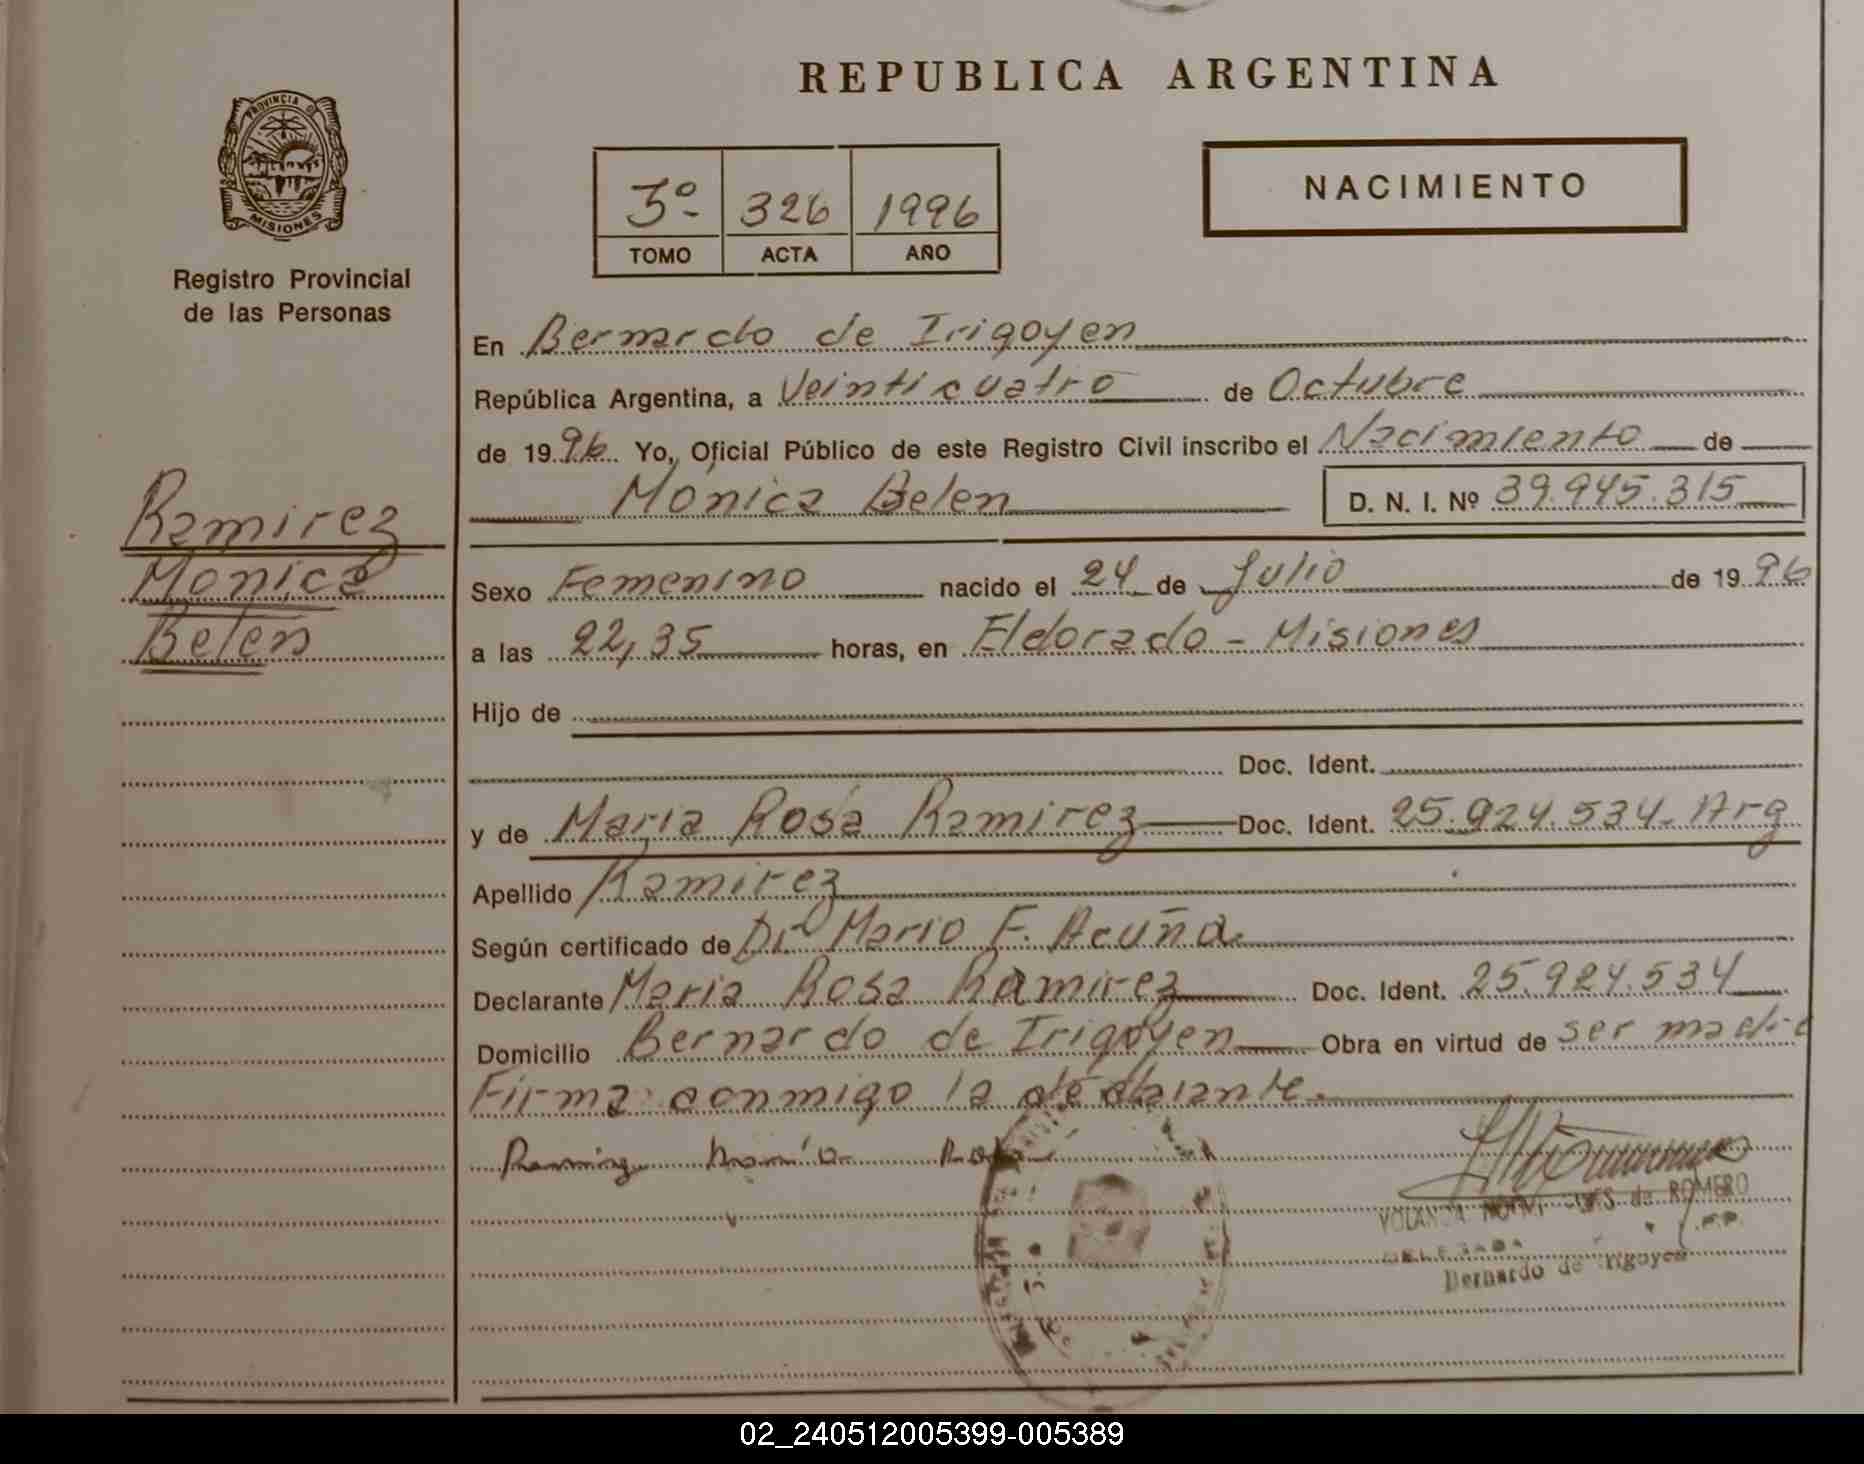 PROVINCIA D
MISIONES
Registro Provincial
de las Personas
Ramirez
Monica
Belen
REPUBLICA ARGENTINA
3º 326 1996
TOMO ACTA AÑO
NACIMIENTO
En Bernardo de Irigoyen
República Argentina, a Veinticuatro de Octubre
de 1996 Yo, Oficial Público de este Registro Civil inscribo el Nacimiento de
Mónica Belen D. N. I. Nº 39.945.315
Sexo Femenino nacido el 24 de Julio de 1996
a las 22,35 horas, en Eldorado - Misiones
Hijo de
Doc. Ident.
y de María Rosa Ramirez Doc. Ident. 25.924.534. Arg
Apellido Ramirez
Según certificado de Dr. Mario F. Acuña.
Declarante María Rosa Ramirez Doc. Ident. 25.924.534
Domicilio Bernardo de Irigoyen Obra en virtud de ser madre
Firma conmigo la declarante.
Ramirez María Rosa
YOLANDA de ROMERO
DELEGADA
Bernardo de Irigoyen
02_240512005399-005389